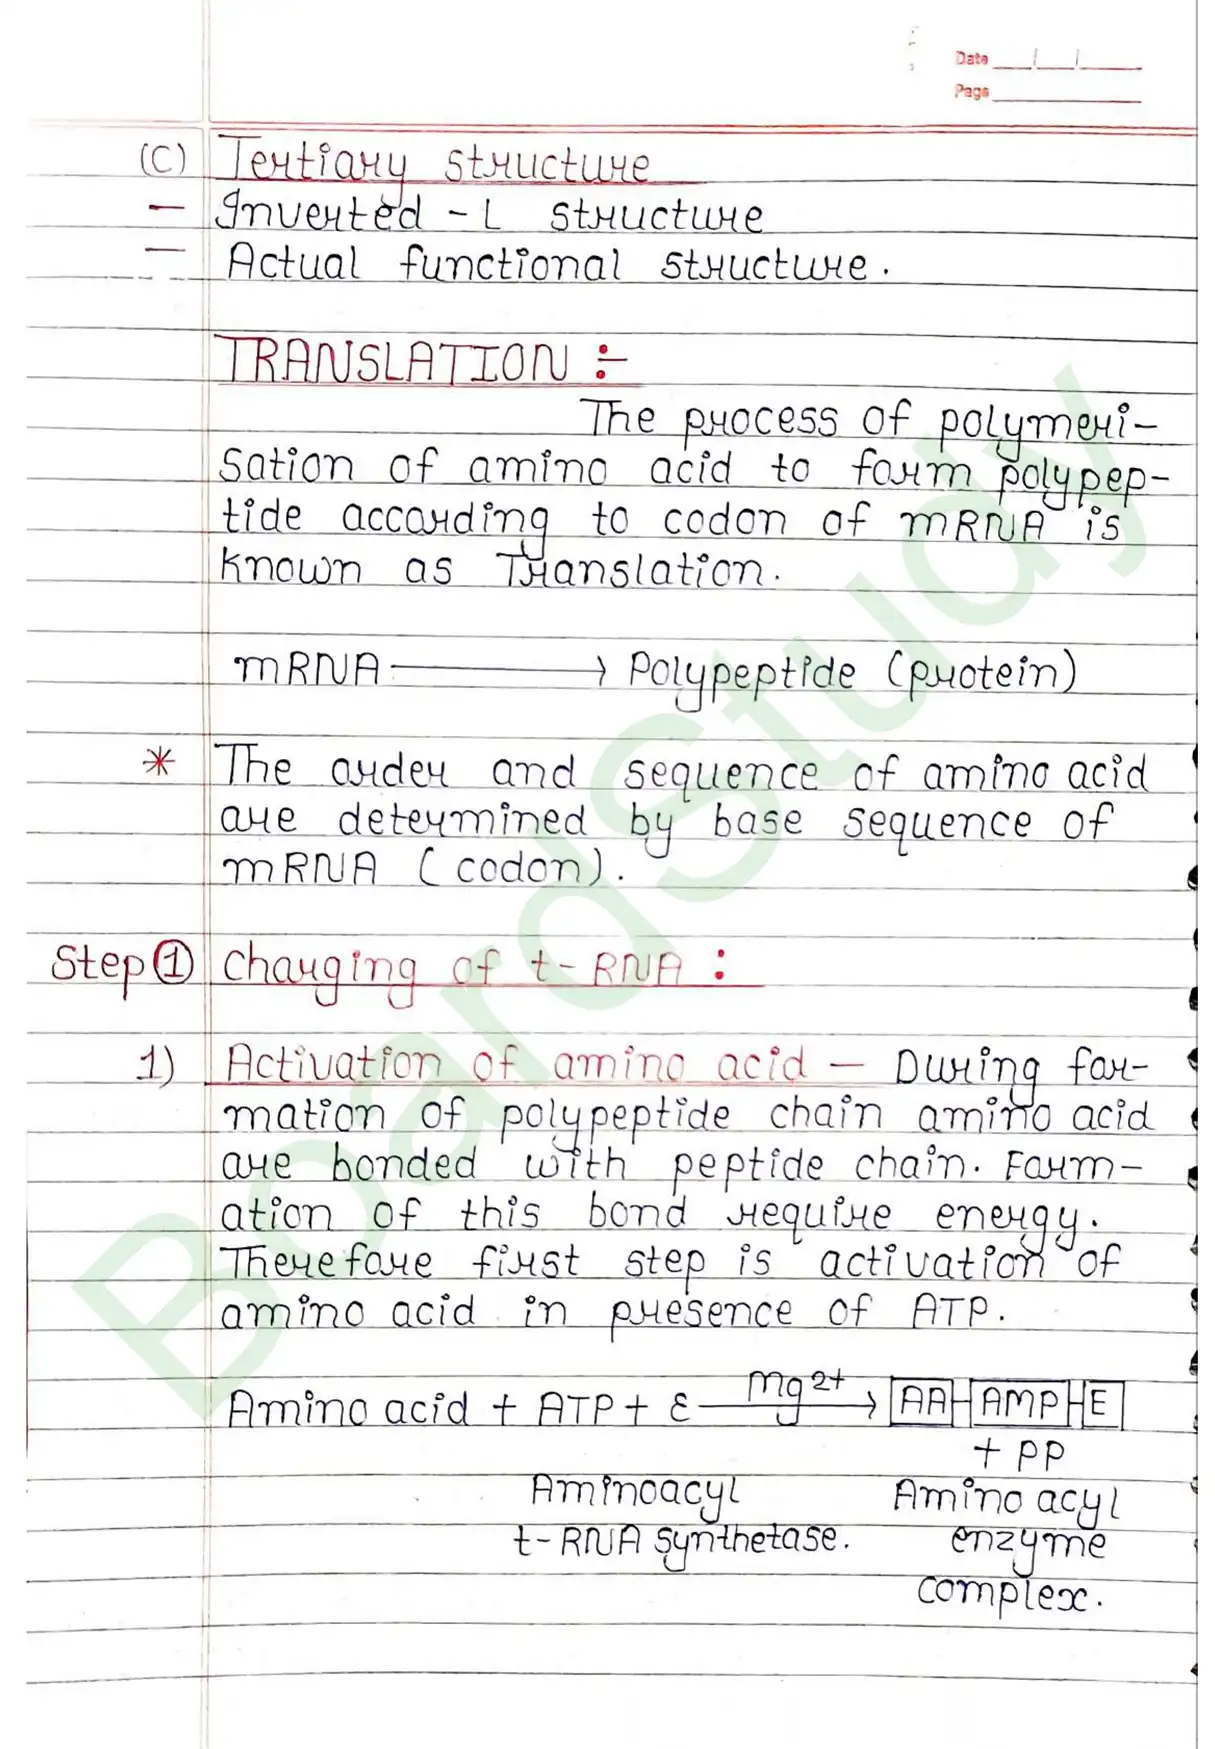 Date __/__/__
Page
(C) Tertiary structure
— Inverted - L structure
— Actual functional structure.
TRANSLATION :-
The process of polymeri-
sation of amino acid to form polypep-
tide according to codon of mRNA is
known as Translation.
mRNA ⟶ Polypeptide (protein)
* The order and sequence of amino acid
are determined by base sequence of
mRNA (codon).
Step ① Charging of t-RNA :
1) Activation of amino acid — During for-
mation of polypeptide chain amino acid
are bonded with peptide chain. Form-
ation of this bond require energy.
Therefore first step is activation of
amino acid in presence of ATP.
Amino acid + ATP + E —Mg2+→ AA-AMP-E
+ PP
Aminoacyl Amino acyl
t-RNA synthetase. enzyme
complex.
BoardStudy